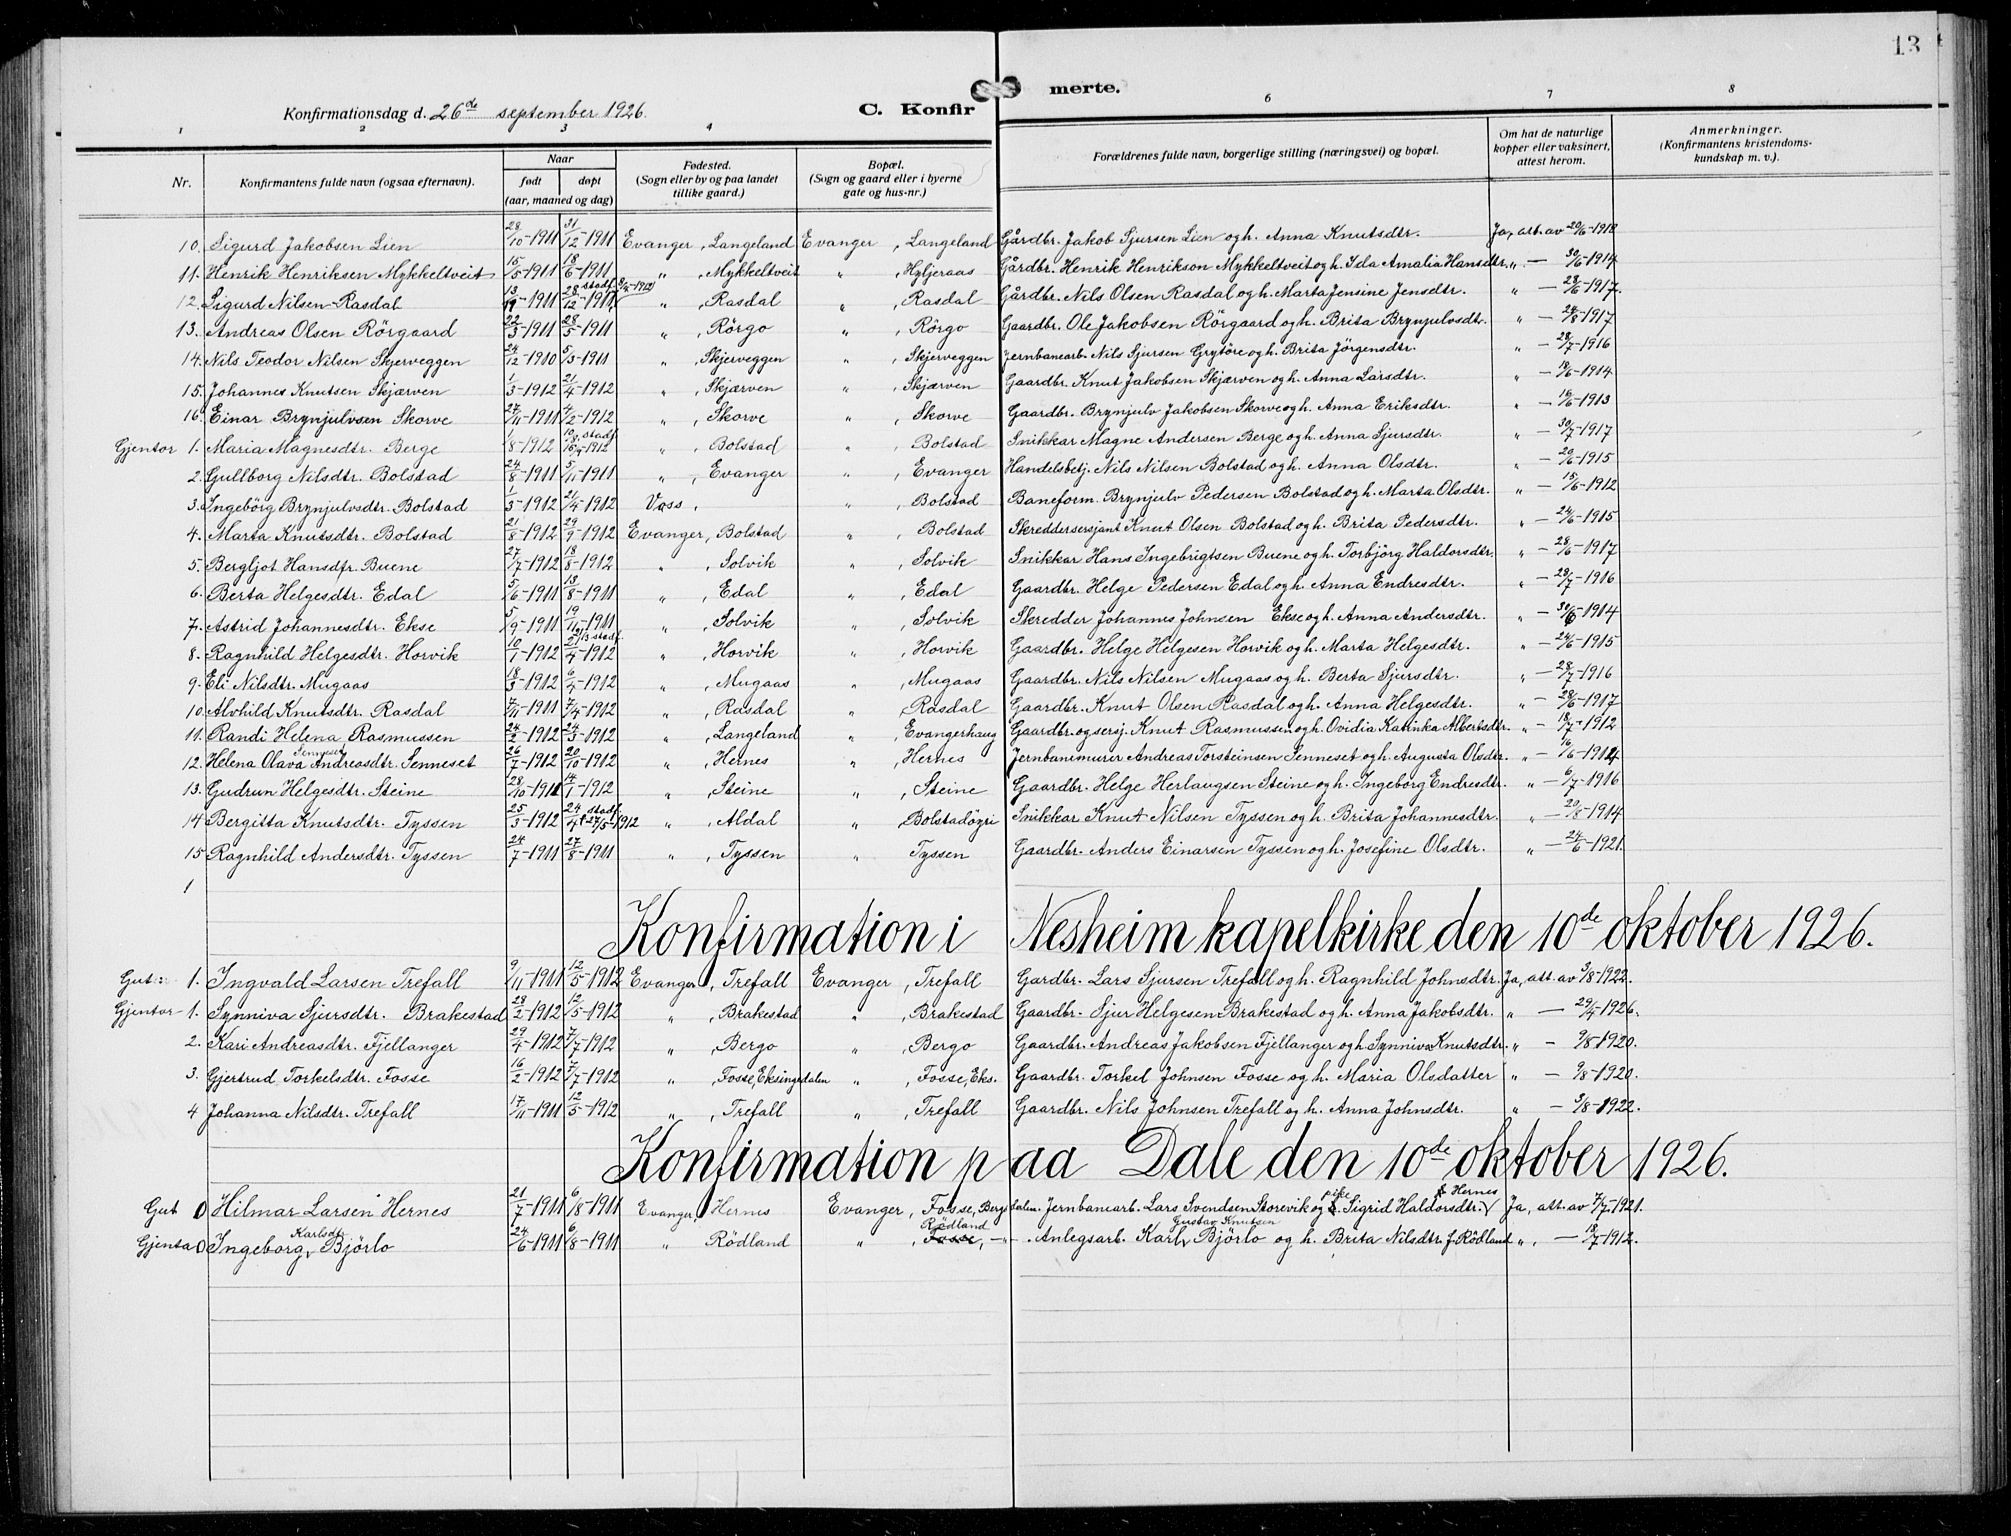 13
Konfirmationsdag d. 26de september 1926.
C. Konfir merte.
1 2 3 4 6 7 8
Nr. Konfirmantens fulde navn (ogsaa efternavn). Naar født døpt (aar, maaned og dag) Fødested. (Sogn eller by og paa landet tillike gaard.) Bopæl. (Sogn og gaard eller i byerne gate og hus-nr.) Forældrenes fulde navn, borgerlige stilling (næringsvei) og bopæl. Om hat de naturlige kopper eller vaksinert, attest herom. Anmerkninger. (Konfirmantens kristendoms-kundskap m. v.).
10. Sigurd Jakobsen Lien 28/10-1911 31/12-1911 Evanger, Langeland Evanger, Langeland Gårdbr. Jakob Sjursen Lien og h. Anna Knutsdtr. Ja, att. av
11. Henrik Henriksen Mykkeltveit 15/5-1911 18/6-1911 " , Mykkeltveit " , Hyljeraas Gårdbr. Henrik Henrikson Mykkeltveit og h. Ida Amalia Hansdtr. " — 30/6-1914
12. Sigurd Nilsen Rasdal 28/12-1911 stadf. " , Rasdal " , Rasdal Gårdbr. Nils Olsen Rasdal og h. Marta Jensine Jensdtr. " — 28/6-1917.
13. Andreas Olsen Rörgaard 22/3-1911 28/5-1911 " , Rörgo " , Rörgo Gaardbr. Ole Jakobsen Rörgaard og h. Brita Brynjulvsdtr. " — 24/8-1917
14. Nils Teodor Nilsen Skjerveggen 24/12-1910 5/3-1911 " , Skjerveggen " , Skjerveggen Jernbanearb. Nils Sjursen Grytöre og h. Brita Jörgensdtr. " — 28/7-1916
15. Johannes Knutsen Skjærven 1/3-1912 21/4-1912 " , Skjærven " , Skjærven Gaardbr. Knut Jakobsen Skjærven og h. Anna Larsdtr. " — 19/6-1914
16. Einar Brynjulvsen Skorve 27/11-1911 4/2-1912 " , Skorve " , Skorve Gaardbr. Brynjulv Jakobsen Skorve og h. Anna Eriksdtr. " — 16/6-1913
Gjentor 1. Maria Magnesdtr. Berge 1/8-1912 stadf. " , Bolstad " , Bolstad Snikkar Magne Andersen Berge og h. Anna Sjursdtr. " — 30/7-1917
2. Gullborg Nilsdtr. Bolstad 24/8-1911 5/11-1911 " , Evanger " , Evanger Handelsbetj. Nils Nilsen Bolstad og h. Anna Olsdtr. " — 20/6-1915
3. Ingebörg Brynjulvsdtr. Bolstad 1/3-1912 21/4-1912 Voss , " , Bolstad Baneform. Brynjulv Pedersen Bolstad og h. Marta Olsdtr. " — 15/6-1912
4. Marta Knutsdtr. Bolstad 21/8-1912 29/9-1912 Evanger, Bolstad " , Bolstad Skreddersersjant Knut Olsen Bolstad og h. Brita Pedersdtr. " — 24/6-1915
5. Bergljot Hansdtr. Buene 27/7-1912 18/8-1912 " , Solvik " , Solvik Snikkar Hans Ingebrigtsen Buene og h. Torbjörg Haldorsdtr. " — 28/6-1917
6. Berta Helgesdtr. Edal 5/6-1911 13/8-1911 " , Edal " , Edal Gaardbr. Helge Pedersen Edal og h. Anna Endresdtr. " — 28/7-1916
7. Astrid Johannesdtr. Ekse 5/9-1911 19/11-1911 " , Solvik " , Solvik Skredder Johannes Johnsen Ekse og h. Anna Andersdtr. " — 30/6-1914
8. Ragnhild Helgesdtr. Horvik 10/1-1912 21/4-1912 stadf. " , Horvik " , Horvik Gaardbr. Helge Helgesen Horvik og h. Marta Helgesdtr. " — 24/6-1915
9. Eli Nilsdtr. Mugaas 18/3-1912 6/4-1912 " , Mugaas " , Mugaas Gaardbr. Nils Nilsen Mugaas og h. Berta Sjursdtr. " — 28/7-1916
10. Alvhild Knutsdtr. Rasdal 7/11-1911 7/4-1912 " , Rasdal " , Rasdal Gaardbr. Knut Olsen Rasdal og h. Anna Helgesdtr. " — 28/6-1917
11. Randi Helena Rasmussen 24/2-1912 24/3-1912 " , Langeland " , Evangerhaug Gaardbr. og sersj. Knut Rasmussen og h. Ovidia Katinka Albertsdtr. " — 18/7-1912
12. Helena Olava Andreasdtr. Senneset 26/7-1912 20/10-1912 " , Hernes " , Hernes Jernbanemurer Andreas Torsteinsen Senneset og h. Augusta Olsdtr. " — 16/6-1914
13. Gudrun Helgesdtr. Steine 28/10-1911 14/1-1912 " , Steine " , Steine Gaardbr. Helge Herlaugsen Steine og h. Ingeborg Endresdtr. " — 6/7-1916
14 Bergitta Knutsdtr. Tyssen 25/3-1912 24/4 stadf. 27/5-1912 " , Aldal " , Bolstadöyri Snikkar Knut Nilsen Tyssen og h. Brita Johannesdtr. " — 20/8-1914
15 Ragnhild Andersdtr. Tyssen 24/7-1911 27/8-1911 " , Tyssen " , Tyssen Gaardbr. Anders Einarsen Tyssen og h. Josefine Olsdtr. " — 24/6-1921.
1
Konfirmation i Nesheim kapelkirke den 10de oktober 1926.
Gut 1. Ingvald Larsen Trefall 9/11-1911 12/5-1912 Evanger, Trefall Evanger, Trefall Gardbr. Lars Sjursen Trefall og h. Ragnhild Johnsdtr. Ja, att. av 3/8-1922.
Gjentor - 1. Synniva Sjursdtr. Brakestad 28/2-1912 12/5-1912 " , Brakestad " , Brakestad Gaardbr. Sjur Helgesen Brakestad og h. Anna Jakobsdtr. " — 29/4-1926.
2. Kari Andreasdtr. Fjellanger 29/4-1912 7/7-1912 " , Bergo " , Bergo Gaardbr. Andreas Jakobsen Fjellanger og h. Synniva Knutsdtr. " - 9/8-1920.
3. Gjertrud Torkelsdtr. Fosse 16/2-1912 7/7-1912 " , Fosse, Eksingedalen " , Fosse, Eks. Gaardbr. Torkel Johnsen Fosse og h. Maria Olsdatter " - 9/8-1920.
4 Johanna Nilsdtr. Trefall 17/11-1911 12/5-1912 " , Trefall " , Trefall Gaardbr. Nils Johnsen Trefall og h. Anna Johnsdtr. " — 3/8-1922.
Konfirmation paa Dale den 10de oktober 1926.
Gut Hilmar Larsen Hernes 21/7-1911 6/8-1911 Evanger, Hernes Evanger, Fosse, Bergsdalen. Jernbanearb. Lars Svendsen Storevik og pike Sigrid Haldorsdtr. Hernes Ja, att. av 7/7-1921.
Gjenta Ingeborg Karlsdtr. Björlo 24/6-1911 6/8-1911 " Rödland " , Rödland Fosse, -"- Anlegsarb. Karl Gustav Knutsen Björlo og h. Brita Nilsdtr. f. Rödland ". — 18/7-1912.